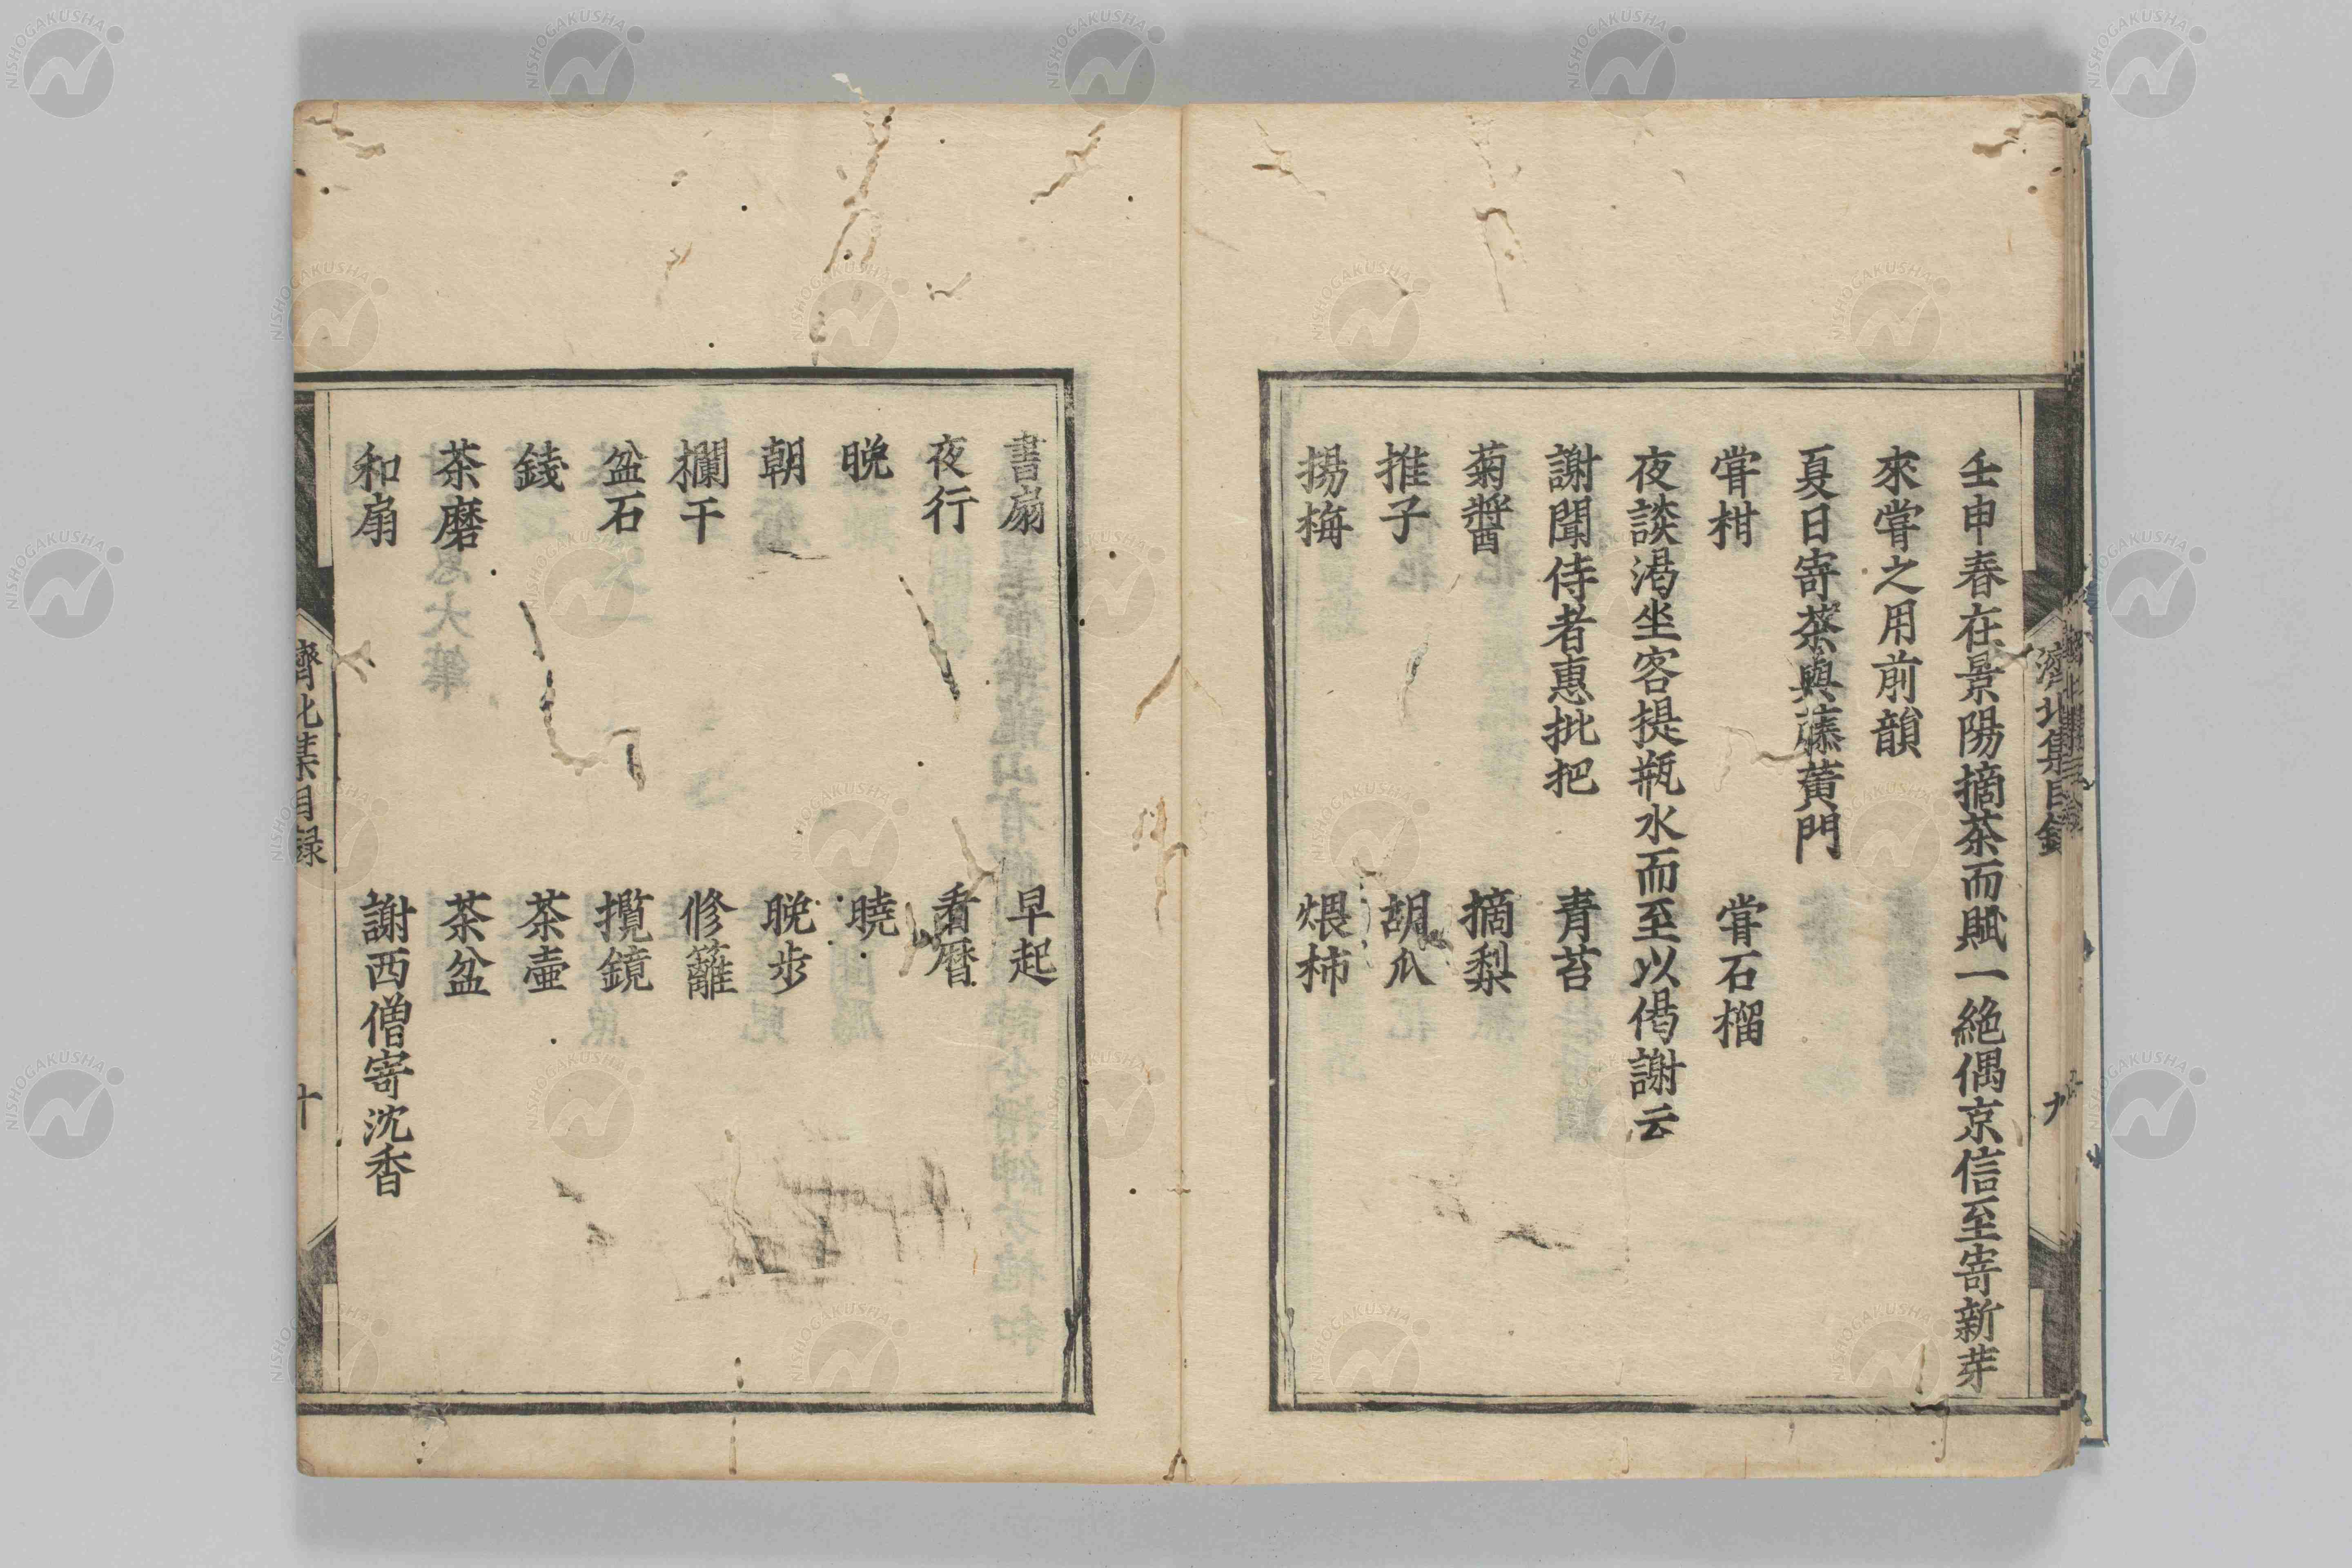 壬申春在景陽摘茶而賦一絶偶京信至寄新芽
來甞之用前韻
夏日寄茶與藤黄門
甞柑　甞石榴
夜談渇坐客提瓶水而至以偈謝云
謝聞侍者惠批把　青苔
菊醬　摘梨
推子　胡瓜
揚梅　煨柿
濟北集目録　九
書扇　早起
夜行　看暦
晩　曉
朝　晩歩
欄干　修籬
盆石　攬鏡
錢　茶壷
茶磨　茶盆
和扇　謝西僧寄沈香
濟北集目録　十
NISHOGAKUSHA